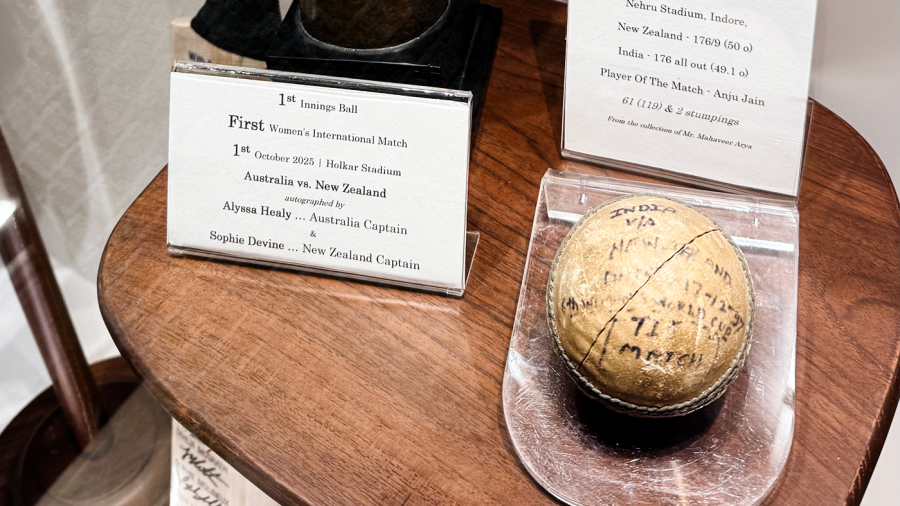 1st Innings Ball
First Women's International Match
1st October 2025 | Holkar Stadium
Australia vs. New Zealand
autographed by
Alyssa Healy ... Australia Captain
&
Sophie Devine ... New Zealand Captain
Nehru Stadium, Indore,
New Zealand - 176/9 (50 o)
India - 176 all out (49.1 o)
Player Of The Match - Anju Jain
61 (119) & 2 stumpings
From the collection of Mr. Mahaveer Arya
INDIA
V/S
MATCH